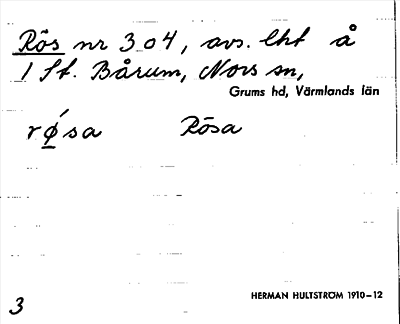 Rös nr 3 o 4, avs. lht å
1 St. Bårum, Nors sn,
Grums hd, Värmlands län
rǿsa Rösa
HERMAN HULTSTRÖM 1910–12
3